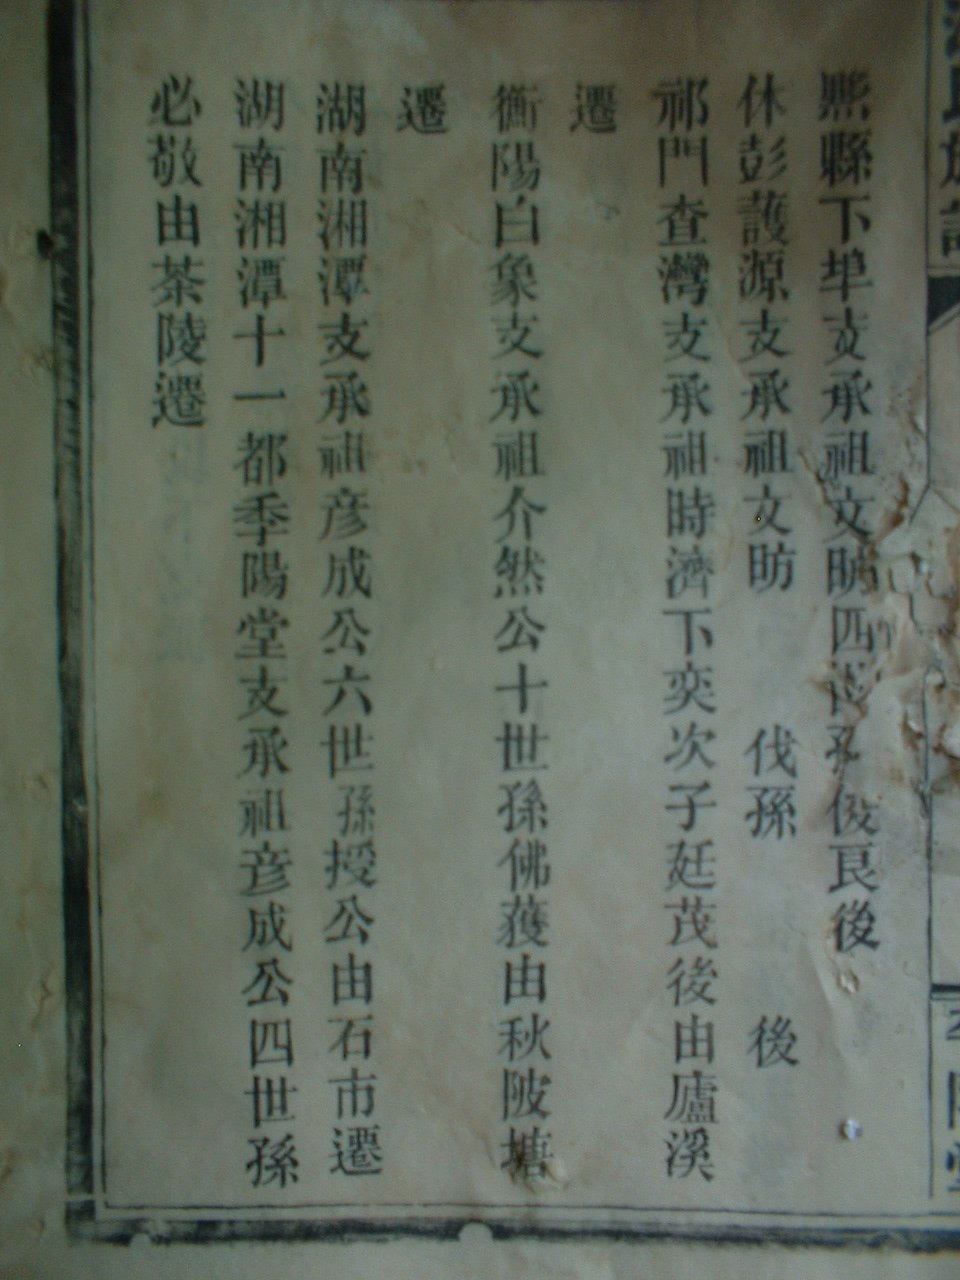 黟縣下埠支承祖文昞四世孫俊良後
休彭護源支承祖文昉 伐孫 後
祁門查灣支承祖時濟下奕次子廷茂後由廬溪
遷
衡陽白象支承祖介然公十世孫佛護由秋陂塘
遷
湖南湘潭支承祖彥成公六世孫授公由石市遷
湖南湘潭十一都季陽堂支承祖彥成公四世孫
必敬由茶陵遷